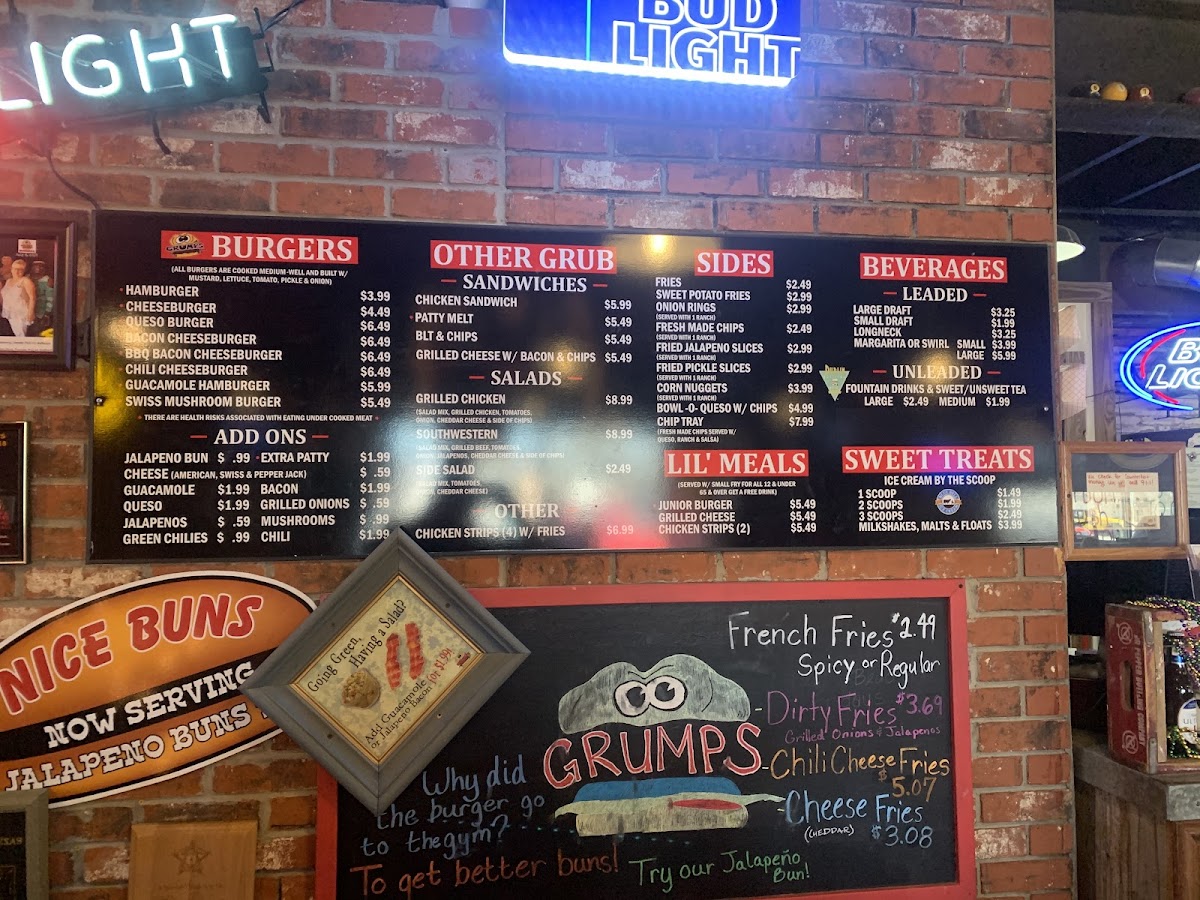 LIGHT
BUD
LIGHT
GRUMPS BURGERS
(ALL BURGERS ARE COOKED MEDIUM-WELL AND BUILT W/
MUSTARD, LETTUCE, TOMATO, PICKLE & ONION)
HAMBURGER $3.99
CHEESEBURGER $4.49
QUESO BURGER $6.49
BACON CHEESEBURGER $6.49
BBQ BACON CHEESEBURGER $6.49
CHILI CHEESEBURGER $6.49
GUACAMOLE HAMBURGER $5.99
SWISS MUSHROOM BURGER $5.49
THERE ARE HEALTH RISKS ASSOCIATED WITH EATING UNDER COOKED MEAT
ADD ONS
JALAPENO BUN $ .99 EXTRA PATTY $1.99
CHEESE (AMERICAN, SWISS & PEPPER JACK) $ .59
GUACAMOLE $1.99 BACON $1.99
QUESO $1.99 GRILLED ONIONS $ .59
JALAPENOS $ .59 MUSHROOMS $ .99
GREEN CHILIES $ .99 CHILI $1.99
OTHER GRUB
SANDWICHES
CHICKEN SANDWICH $5.99
PATTY MELT $5.49
BLT & CHIPS $5.49
GRILLED CHEESE W/ BACON & CHIPS $5.49
SALADS
GRILLED CHICKEN $8.99
(SALAD MIX, GRILLED CHICKEN, TOMATOES,
ONION, CHEDDAR CHEESE & SIDE OF CHIPS)
SOUTHWESTERN $8.99
(SALAD MIX, GRILLED BEEF, TOMATOES,
ONION, JALAPENOS, CHEDDAR CHEESE & SIDE OF CHIPS)
SIDE SALAD $2.49
(SALAD MIX, TOMATOES,
ONION, CHEDDAR CHEESE)
OTHER
CHICKEN STRIPS (4) W/ FRIES $6.99
SIDES
FRIES $2.49
SWEET POTATO FRIES $2.99
ONION RINGS $2.99
(SERVED WITH 1 RANCH)
FRESH MADE CHIPS $2.49
(SERVED WITH 1 RANCH)
FRIED JALAPENO SLICES $2.99
(SERVED WITH 1 RANCH)
FRIED PICKLE SLICES $2.99
(SERVED WITH 1 RANCH)
CORN NUGGETS $3.99
(SERVED WITH 1 RANCH)
BOWL-O-QUESO W/ CHIPS $4.99
CHIP TRAY $7.99
(FRESH MADE CHIPS SERVED W/
QUESO, RANCH & SALSA)
LIL' MEALS
(SERVED W/ SMALL FRY FOR ALL 12 & UNDER
65 & OVER GET A FREE DRINK)
JUNIOR BURGER $5.49
GRILLED CHEESE $5.49
CHICKEN STRIPS (2) $5.49
BEVERAGES
LEADED
LARGE DRAFT $3.25
SMALL DRAFT $1.99
LONGNECK $3.25
MARGARITA OR SWIRL SMALL $3.99
LARGE $5.99
UNLEADED
FOUNTAIN DRINKS & SWEET/UNSWEET TEA
LARGE $2.49 MEDIUM $1.99
SWEET TREATS
ICE CREAM BY THE SCOOP
1 SCOOP $1.49
2 SCOOPS $1.99
3 SCOOPS $2.49
MILKSHAKES, MALTS & FLOATS $3.99
NICE BUNS
NOW SERVING
JALAPENO BUNS
Going Green,
Having a Salad?
Add Guacamole
or Jalapeno Bacon for $1.99!
French Fries $2.49
Spicy or Regular
Dirty Fries $3.69
Grilled Onions & Jalapenos
Chili Cheese Fries
$5.07
Cheese Fries
(CHEDDAR) $3.08
GRUMPS
Why did
the burger go
to the gym?
To get better buns!
Try our Jalapeño
Bun!